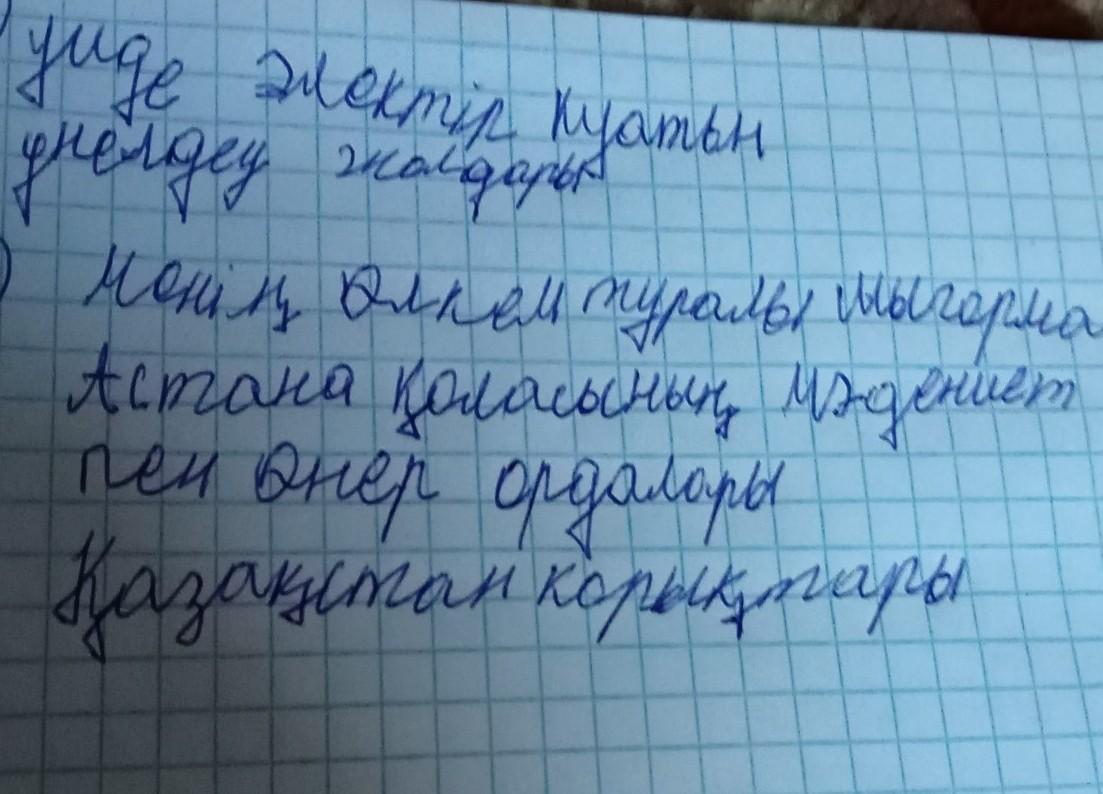 үйде электір қуатын
үнемдеу жолдары
Менің өлкем туралы шығарма
Астана қаласының мәдениет
пен өнер ордалары
Қазақстан қорықтары